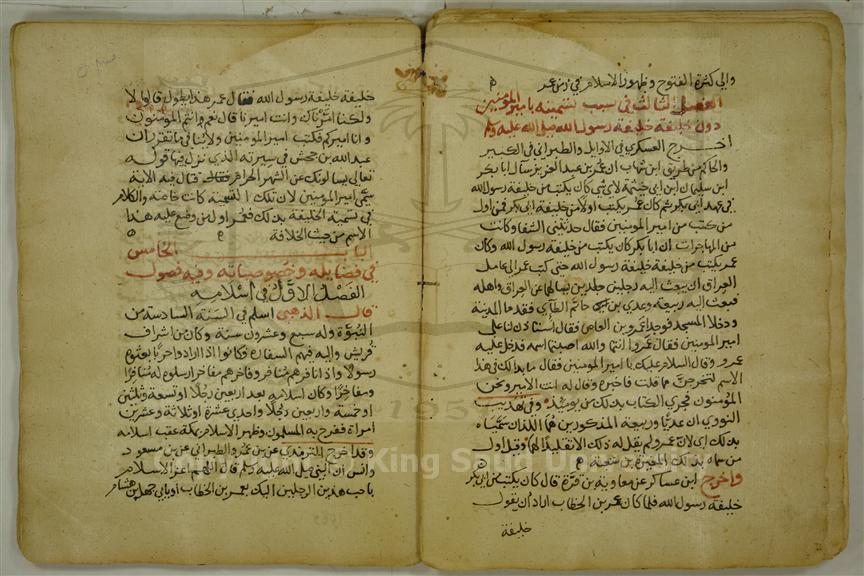 والى كثرة الفتوح وظهور الاسلام في زمن عمر
الفصل الثالث في سبب تسميته بامير المومنين
دون خليفة خليفة رسول الله صلى الله عليه وسلم
أخرج العسكري في الاوايل والطبراني في الكبير
والحاكم من طريق ابن شهاب ان عمر بن عبد العزيز سأل ابا بكر
ابن سليمان ابن ابي خيثمة لاي شي كان يكتب من خليفة رسول الله
في عهد ابي بكر ثم كان عمر يكتب اولا من خليفة ابي بكر فمن اول
من كتب من امير المومنين فقال حدثتني الشفا وكانت
من المهاجرات ان ابا بكر كان يكتب من خليفة رسول الله وكان
عمر يكتب من خليفة خليفة رسول الله حتى كتب عمر الى عامل
العراق ان يبعث اليه رجلين جلدين يسالهما عن العراق واهله
فبعث اليه ربيعة وعدي بن حاتم الطاي فقدما المدينة
ودخلا المسجد فوجدا عمرو بن العاص فقال استاذن لنا على
امير المومنين فقال عمرو انتما والله اصبتما اسمه فدخل عليه
عمرو وقال السلام عليك يا امير المومنين فقال ما بدا لك في هذا
الاسم لتخرجن مما قلت فاخبره وقال له انت الامير ونحن
المؤمنون فجري الكتاب بذلك من يوميذ وفي تهذيب
النووي ان عديا وربيعة المذكورين هما اللذان سمياه
بذلك اي لان عمر لم يقله ذلك الا تقليدا لهما وقيل اول
من سماه بذلك المغيرة بن شعبة
واخرج ابن عساكر عن معاوية بن قرة قال كان يكتب من ابي بكر
خليفة رسول الله فلما كان عمر بن الخطاب ارادوا ان يقول
خليفة
خليفة خليفة رسول الله فقال عمر هذا يطول قالوا لا
ولكنا امرناك وانت اميرنا قال نعم وانتم المؤمنون
وانا اميركم فكتب امير المومنين ولاينافي ما تقرر ان
عبد الله بن جحش في سيرته الذي نزل فيها قوله
تعالى يسالونك عن الشهر الحرام قتال فيه الاية
سمي امير المومنين لان تلك التسمية كانت خاصة والكلام
في تسمية الخليفة بذلك فعمر اول من وضع عليه هذا
الاسم من حيث الخلافة
الباب الخامس
في فضايله وخصوصياته وفيه فصول
الفصل الاول في اسلامه
قال الذهبي اسلم في السنة السادسة من
النبوة وله سبع وعشرون سنة وكان من اشراف
قريش واليه فيهم السفارة فكانوا اذا ارادوا حربا بعثوه
رسولا واذا نافرهم منافر وفاخرهم مفاخر ارسلوه له منافرا
ومفاخرا وكان اسلامه بعد اربعين رجلا او تسعة وثلثين
او خمسة واربعين رجلا واحدى عشرة او ثلاثة وعشرين
امراة ففرح به المسلمون وظهر الاسلام بمكة عقب اسلامه
وقد اخرج الترمذي عن بن عمر والطبراني عن بن مسعود
وانس ان النبي صلى الله عليه وسلم قال اللهم اعز الاسلام
باحب هذين الرجلين اليك بعمر بن الخطاب او بابي جهل بن هشام
King Saud University
1957